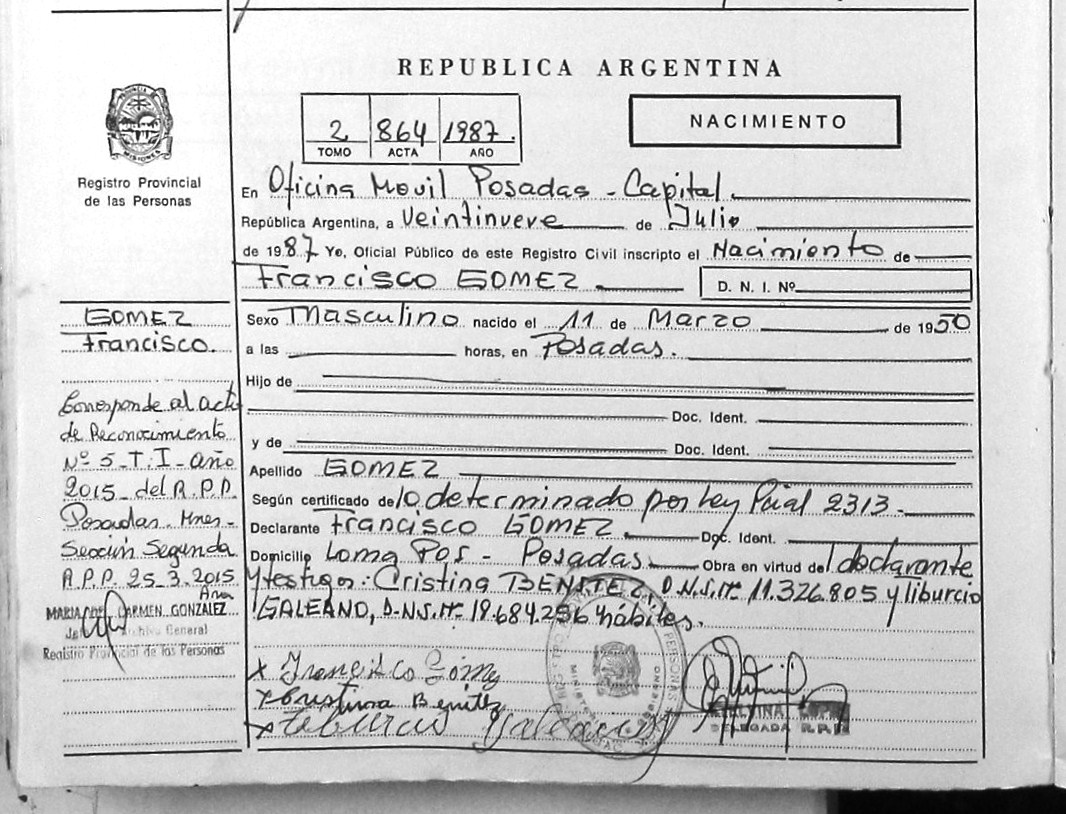 REPUBLICA ARGENTINA
2 864 1987.
TOMO ACTA AÑO
NACIMIENTO
PROVINCIA
MISIONES
Registro Provincial
de las Personas
En Oficina Movil Posadas - Capital
República Argentina, a Veintinueve de Julio
de 1987 Yo, Oficial Público de este Registro Civil inscripto el Nacimiento de
Francisco GOMEZ
D. N. I. Nº
Sexo Masculino nacido el 11 de Marzo de 1950
a las horas, en Posadas.
Hijo de
Doc. Ident.
y de Doc. Ident.
Apellido GOMEZ
Según certificado de lo determinado por Ley Pcial 2313.
Declarante Francisco GOMEZ Doc. Ident.
Domicilio Loma Pos - Posadas Obra en virtud del declarante
y testigos: Cristina BENITEZ, D.N.I. Nº 11.326.805 y liburcio
GALEANO, D.N.I. Nº 18.684.256 hábiles.
x Francisco Gómez
x Cristina Benitez
x teburcio Galeano
DELEGADA R.P.P.
GOMEZ
Francisco.
Corresponde al acta
de Reconocimiento
Nº 5 - T. I - Año
2015 del R.P.P.
Posadas - Mnes -
Sección Segunda
R.P.P. 25-3-2015
Ana
MARIA DEL CARMEN GONZALEZ
Archivo General
Registro Provincial de las Personas